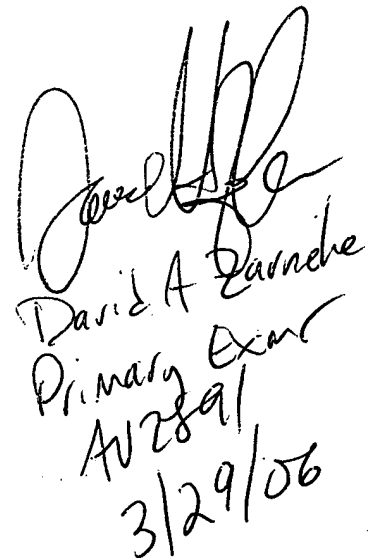 David A Zarneke
Primary Exmr
AU 2891
3/29/06